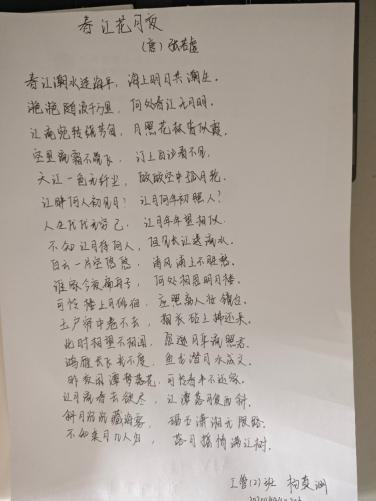 春江花月夜
(唐) 张若虚
春江潮水连海平, 海上明月共潮生.
滟滟随波千万里, 何处春江无月明.
江流宛转绕芳甸, 月照花林皆似霰.
空里流霜不觉飞, 汀上白沙看不见.
江天一色无纤尘, 皎皎空中孤月轮.
江畔何人初见月? 江月何年初照人?
人生代代无穷已, 江月年年望相似.
不知江月待何人, 但见长江送流水.
白云一片去悠悠, 青枫浦上不胜愁.
谁家今夜扁舟子, 何处相思明月楼.
可怜楼上月徘徊, 应照离人妆镜台.
玉户帘中卷不去, 捣衣砧上拂还来.
此时相望不相闻, 愿逐月华流照君.
鸿雁长飞光不度, 鱼龙潜跃水成文.
昨夜闲潭梦落花, 可怜春半不还家.
江水流春去欲尽, 江潭落月复西斜.
斜月沉沉藏海雾, 碣石潇湘无限路.
不知乘月几人归, 落月摇情满江树.
工管(2)班